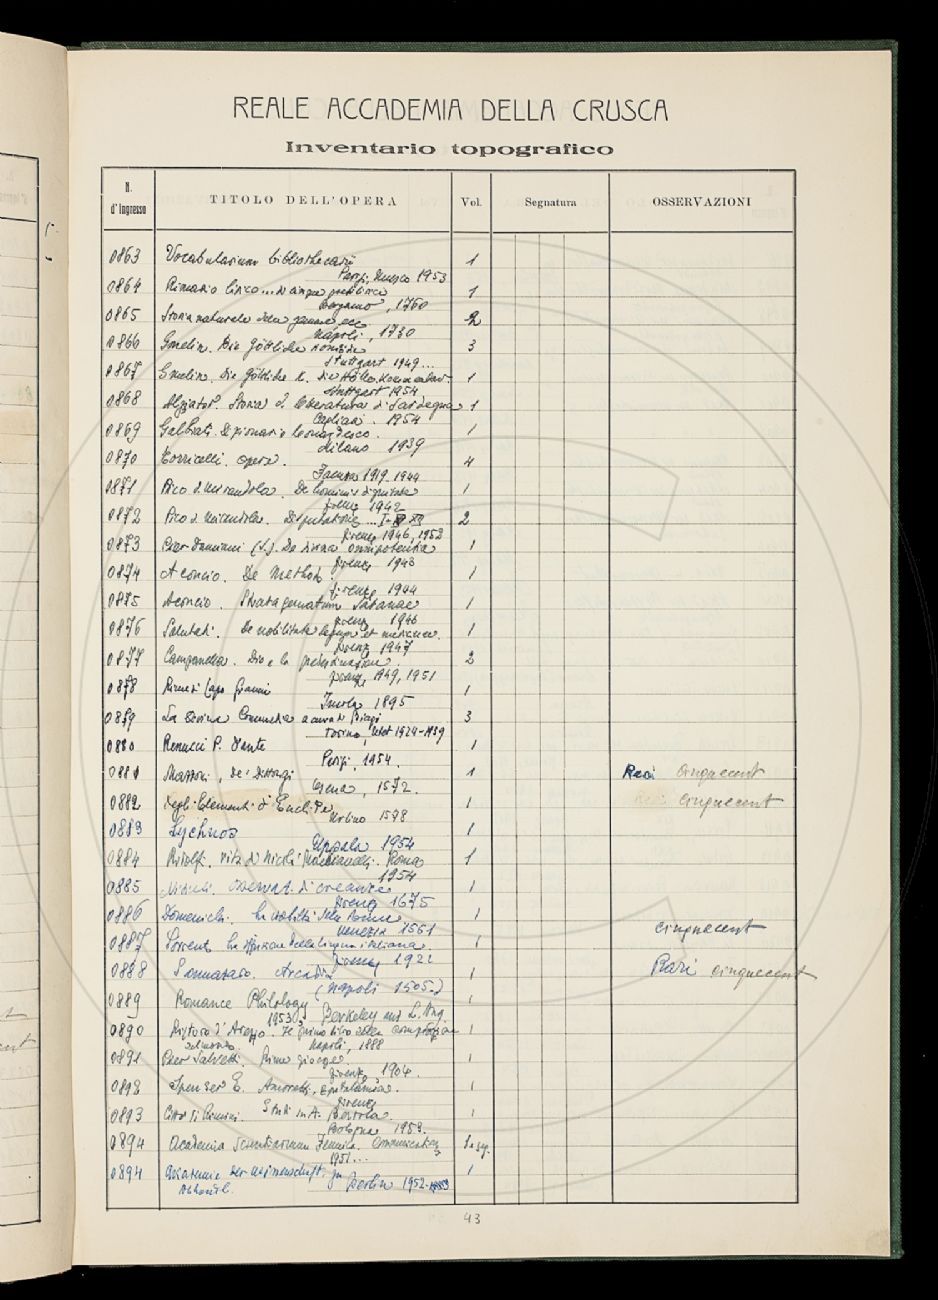 REALE ACCADEMIA DELLA CRUSCA
Inventario topografico
N. d'Ingresso TITOLO DELL'OPERA Vol. Segnatura OSSERVAZIONI
0863 Vocabularium bibliothecarii 1
Parigi, Unesco 1953
0864 Rimario lirico... di cinque 1
Bergamo, 1760
0865 Storia naturale delle gemme ecc 2
Napoli, 1730
0866 Gmelin. Die Göttliche Komödie 3
Stuttgart 1949...
0867 Gmelin. Die Göttliche K. Die Hölle. Kommentar. 1
Stuttgart 1954
0868 Alziator. Storia d. letteratura di Sardegna 1
Cagliari. 1954
0869 Galbiati. Dizionario leonardesco. 1
Milano 1939
0870 Torricelli. Opere. 4
Faenza 1919. 1944
0871 Pico d. Mirandola. De hominis dignitate 1
Firenze 1942
0872 Pico d. Mirandola. Disputationes ... I- XII 2
Firenze 1946, 1952
0873 Pier Damiani (S.). De divina omnipotentia 1
Firenze 1943
0874 Aconcio. De Methodo. 1
Firenze 1944
0875 Aconcio. Stratagematum Satanae 1
Firenze 1946
0876 Salutati. De nobilitate legum et medicinae. 1
Firenze 1947
0877 Campanella. Dio e la predestinazione. 2
Firenze 1949, 1951
0878 Rime di Lapo Gianni 1
Imola 1895
0879 La Divina Commedia a cura di Biagi 3
Torino, Utet 1924-1939
0880 Renucci P. Dante 1
Parigi, 1954.
0881 Mazzoni, De' Dittongi 1 Rari Cinquecent
Cesena, 1572.
0882 Degli Elementi d'Euclide 1 cinquecent
Urbino 1578
0883 Lychnos 1
Uppsala 1954
0884 Ridolfi. Vita di Nicolò Machiavelli. Roma 1
1954
0885 osservat. di creanze 1
Firenze 1675
0886 Domenichi. La nobiltà delle donne. 1
Venezia 1551 cinquecent
0887 Sorrento La diffusione della lingua italiana. 1
Firenze 1921
0888 Sannazaro. Arcadia 1 Rari cinquecent
(Napoli 1505.)
0889 Romance Philology 1
1953 Berkeley and L. Ang.
0890 Ristoro d'Arezzo. Il primo libro della composizione 1
del mondo. Napoli, 1888
0891 Pier Salvetti. Rime giocose. 1
Firenze 1904.
0892 Spenser E. Amoretti, epithalamion. 1
Firenze
0893 Città di Rimini. Studi in A. Bertola. 1
Bologna 1953.
0894 Academia Scientiarum Fennica. 1 e sg.
1951...
0894 Akademie der Wissenschaft. zu 1
Abhandl. Berlin 1952-1953
43